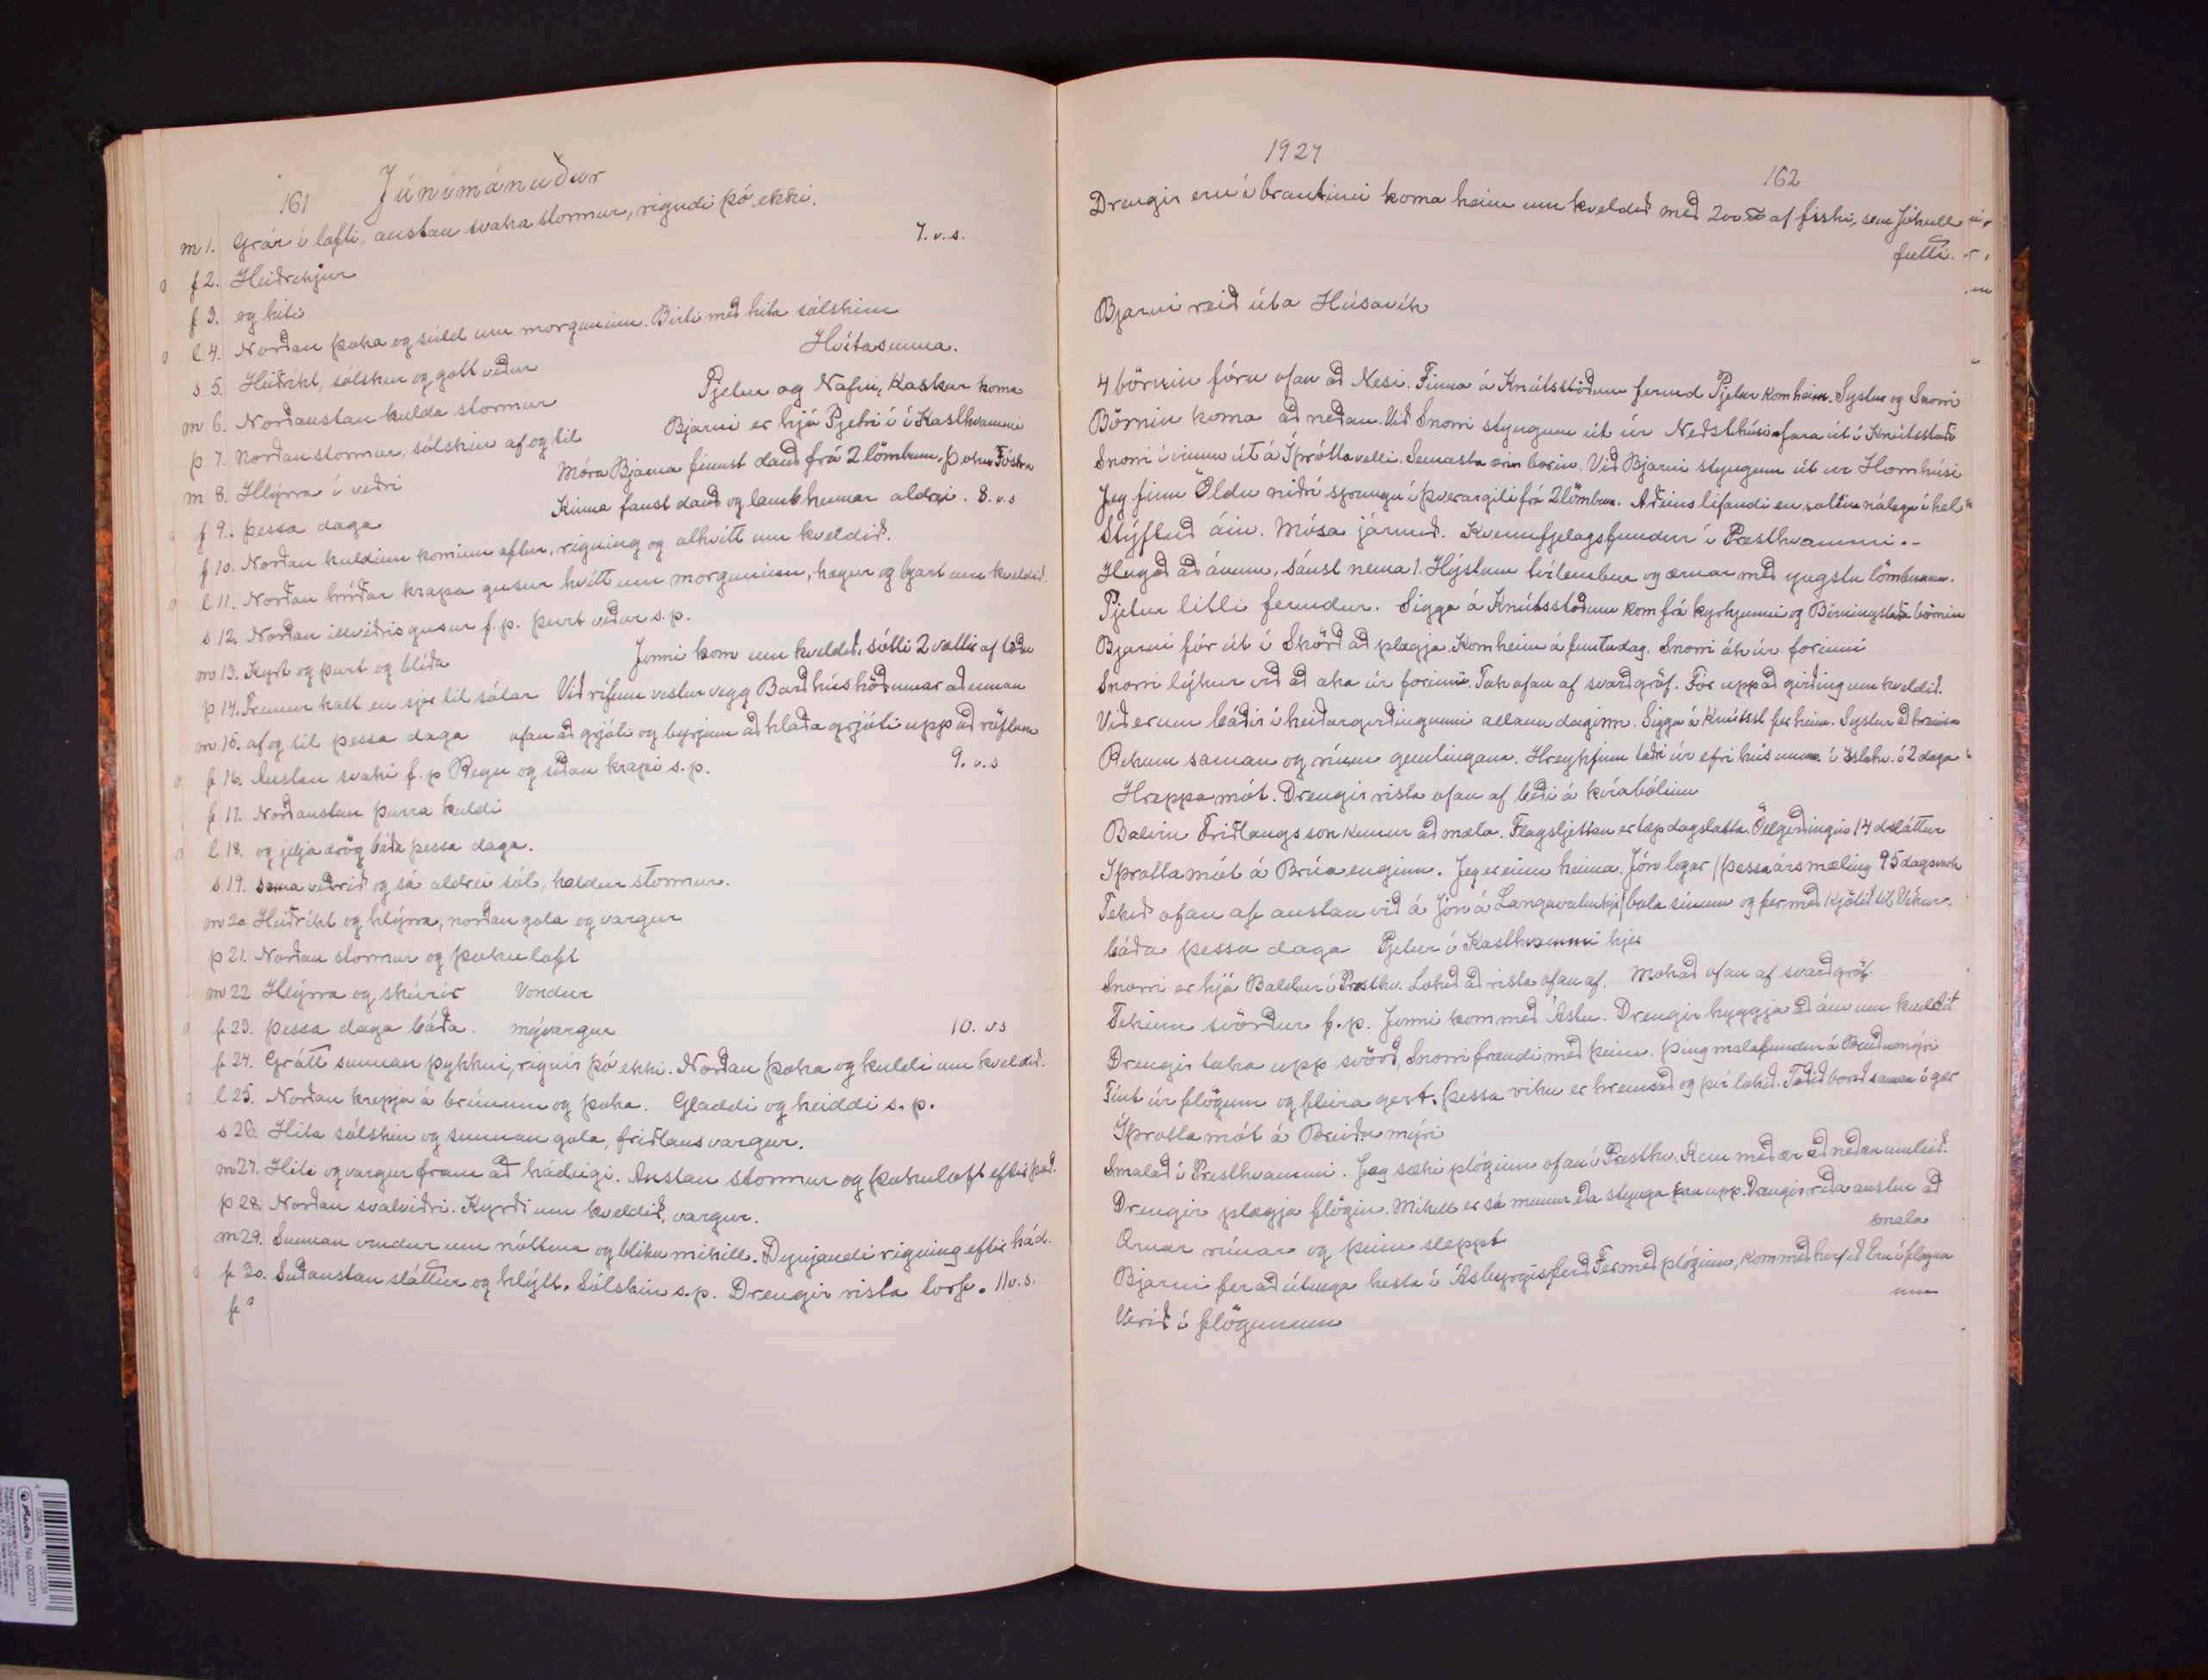 161 Júnímánuður
m 1. Grár í lofti, austan svaka stormur, rigndi þó ekki.
f 2. Heiðrekjur 7. v. s.
f 3. og hiti
l 4. Norðan þoka og súld um morguninn. Birti með hita sólskin
s 5. Heiðríkt, sólskin og gott veður Hvítasunna.
m 6. Norðaustan kulda stormur Pjetur og Nafni, Kaskur koma
þ 7. Norðan stormur, sólskin af og til Bjarni er hjá Pjetri í Kasthvammi
m 8. Hlýrra í veðri Móra Bjarna finnst dauð frá 2 lömbum, Fóstra
f 9. þessa daga Kinna fanst dauð og lamb hennar aldrei. 8. v. s
f 10. Norðan kuldinn kominn aftur, rigning og alhvítt um kveldið.
l 11. Norðan hríðar krapa gusur hvítt um morguninn, hægur og bjart um kveldið.
s 12. Norðan illviðris gusur f. p. þurt veður s. p.
m 13. Kyrt og þurt og blíða Jonni kom um kveldið, sótti 2 vættir af töðu
þ 14. Fremur kalt en sjer til sólar Við rífum vestur vegg Barðhús höðunnar að innan
m 15. af og til þessa daga ofan að grjóti og byrjum að hlaða grjóti upp að röftum
f 16. Austan svaki f. p Regn og síðan krapi s. p. 9. v. s
f 17. Norðaustan þurra kuldi
l 18. og jelja drög báða þessa daga.
s 19. sama veðrið og sá aldrei sól, heldur stormur.
m 20 Heiðríkt og hlýrra, norðan gola og vargur
þ 21. Norðan stormur og þoku loft
m 22 Hlýrra og skúrir Vondur
f 23. þessa daga báða. mývargur 10. v s
f 24. Grátt sunnan þykkni, rignir þó ekki. Norðan þoka og kuldi um kveldið.
l 25. Norðan krepja á brúnum og þoka. Gladdi og heiddi s. p.
s 26. Hita sólskin og sunnan gola, friðlaus vargur.
m 27. Hiti og vargur fram að hádeigi. Austan stormur og þokuloft eftir það.
þ 28. Norðan svalviðri. Kyrði um kveldið, vargur.
m 29. Sunnan vindur um nóttina og blíku mikill. Dynjandi rigning eftir hád.
f 30. Suðaustan sláttur og hlýtt. Sólskin s. p. Drengir rista torf. 11 v. s.
1927
162
Drengir eru í brautinni koma heim um kveldið með 200 af fiski, sem Jökull
flutti.
Bjarni reið út á Húsavík
4 börnin fóru ofan að Nesi. Finna á Knútsstöðum fermd Pjetur kom heim. Systur og Snorri
Börnin koma að neðan. Við Snorri styngum út úr Neðsthúsi fara út í Knútsstaði
Snorri í vinnu út á Íþróttavelli. Seinasta ærin borin. Við Bjarni styngum út úr Hornhúsi
Jeg finn Öldu niðri sprungu í þverárgili frá 2 lömbum. Aðeins lifandi en soltin nálega í hel
Stýflað áin. Mósa járnuð. Kvennfjelagsfundur í Presthvammi.
Hugað að ánum, sáust nema 1. Hýstum tvílembur og ærnar með yngstu lömbunum.
Pjetur litli fermdur. Sigga á Knútsstöðum kom frá kyrkjunni og Birningsstaða börnin
Bjarni fór út í Skörð að plægja. Kom heim á funtudag. Snorri ók úr forinni
Snorri lýkur við að aka úr forinni. Tók ofan af svarðgröf. Fór upp að girðing um kveldið.
Við erum báðir í heiðargirðingunni allann daginn. Sigga á Knútsst fer heim. Systur að hreinsa
Rekum saman og rúum gemlingana. Hreykjum taði úr efri húsunum í 2 daga
Hreppamót. Drengir rista ofan af beði á kvíabólinu
Baldvin Friðlaugsson kemur að mæla. Flagsljettan er tæp dagslátta. Öll girðingin 14 dsláttur
Íþróttamót á Brúa enginu. Jeg er einn heima. Jón logar (þessa árs mæling 95 dagsverk
Tekið ofan af austan við á Jón á Langavatni hjó bola sínum og fer með kjötið til Víkur.
báða þessa daga Pjetur í Kasthvammi hjer
Snorri er hjá Baldur í Presthv. Lokið að rista ofan af. Mokað ofan af svarðgröf
Tekinn svörður f. p. Jonni kom með Áslu. Drengir hyggja að ám um kveldið
Drengir taka upp svörð, Snorri frændi með þeim. Þingmálafundur á Breiðumýri
Tínt úr flögum og fleira gert. Þessa viku er hreinsað og því lokið. Taðið borið saman í gær
Íþróttamót á Breiðu mýri
Smalað í Presthvammi. Jeg sæki plóginn ofan í Presthv. Kem með ær að neðan um leið.
Drengir plægja flögin. Mikill er sá munur eða stynga þau upp. Drengir ríða austur að
smala
Ærnar rúnar og þeim sleppt
Bjarni fer að útvega hesta í Ásbyrgisferð Fer með plóginn, kom með herfið Eru í flögun
um
Verið í flögunum